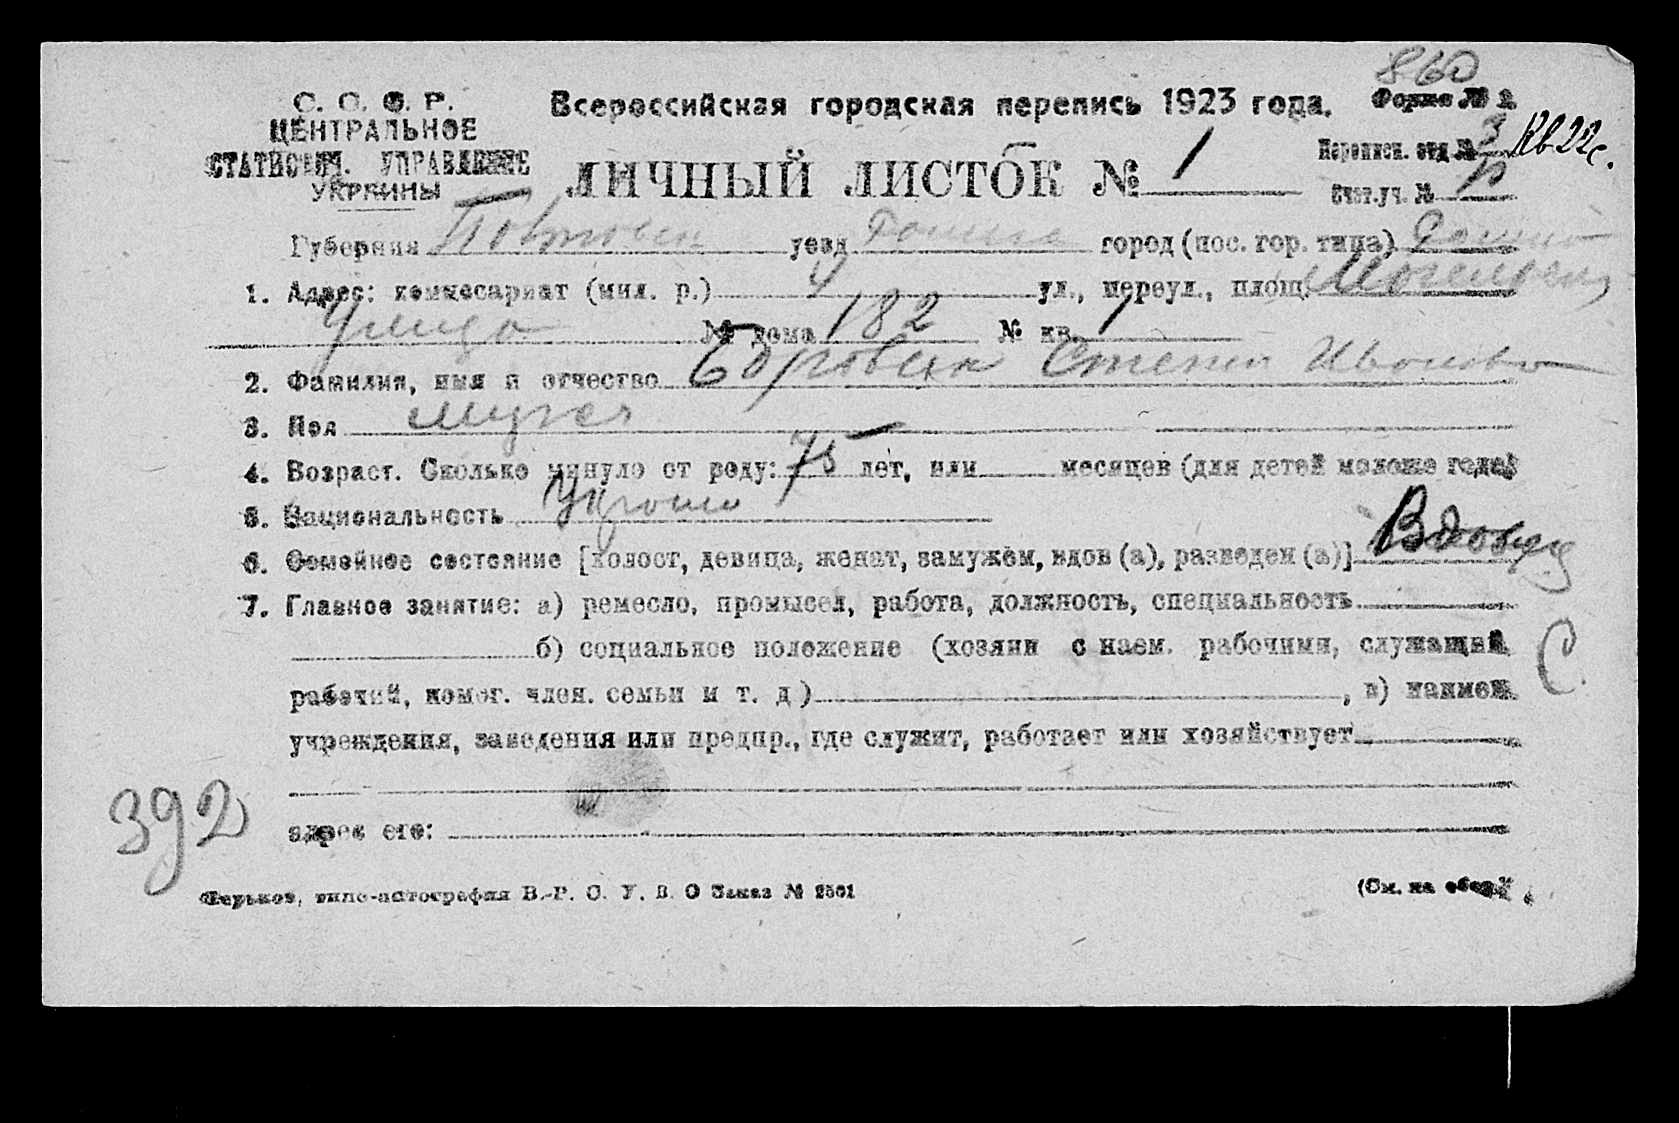 860
С. С. Ф. Р.
ЦЕНТРАЛЬНОЕ
СТАТИСТИЧ. УПРАВЛЕНИЕ
УКРАИНЫ
Всероссийская городская перепись 1923 года.
Форма № 2
ЛИЧНЫЙ ЛИСТОК № 1
Переписн. отд. № 3
Счет. уч. №
Губерния уезд город (пос. гор. типа)
1. Адрес: комиссариат (мил. р.) 4 ул., переул., площ.
улица № дома 182 № кв. 1
2. Фамилия, имя и отчество
3. Пол
4. Возраст. Сколько минуло от роду: 75 лет, или месяцев (для детей моложе года)
5. Национальность
6. Семейное состояние [холост, девица, женат, замужем, вдов (а), разведен (а)] Вдовец
7. Главное занятие: а) ремесло, промысел, работа, должность, специальность
б) социальное положение (хозяин с наем. рабочими, служащий
рабочий, помог. член. семьи и т. д) , в) наимен.
учреждения, заведения или предпр., где служит, работает или хозяйствует
С.
392
адрес его:
Харьков, типо-литография В.-Р. С. У. В. О Заказ № 2501
(См. на обор.